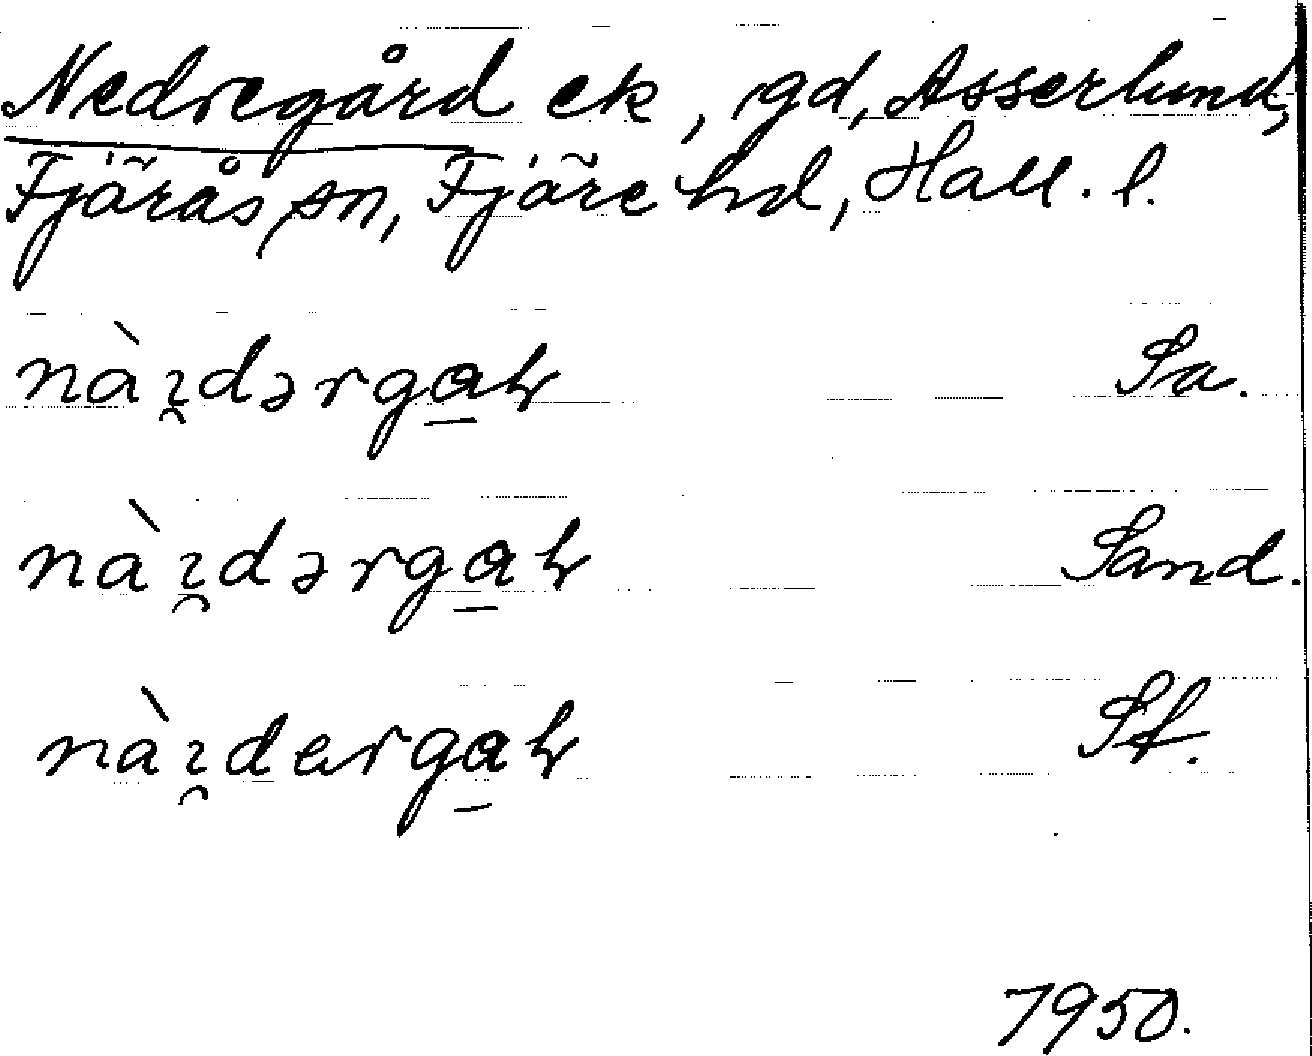 Nedregård ek, gd, Asserlund,
Fjärås sn, Fjäre hd, Hall. l.
nàı̯dərga̲ꝛ Sa.
nàı̯dərga̲ꝛ Sand.
nàı̯dərga̲ꝛ Sf.
7950.